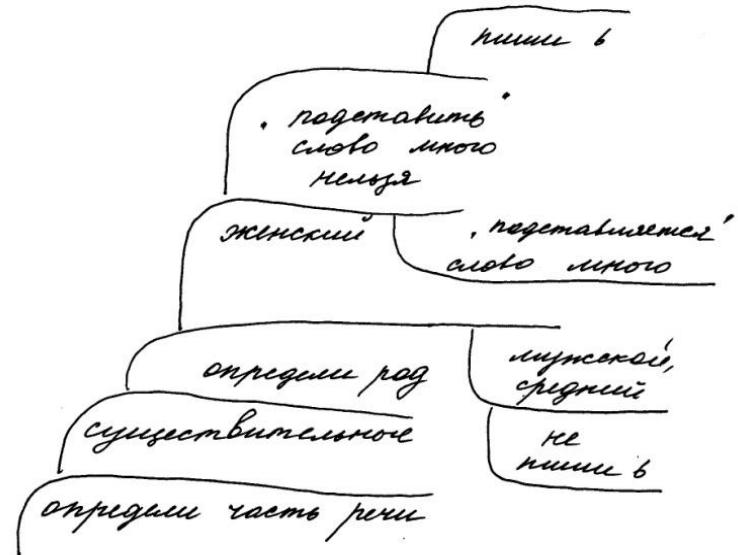 пиши ь
„подставить"
слово много
нельзя
женский
„подставляется"
слово много
определи род
мужской,
средний
существительное
не
пиши ь
определи часть речи